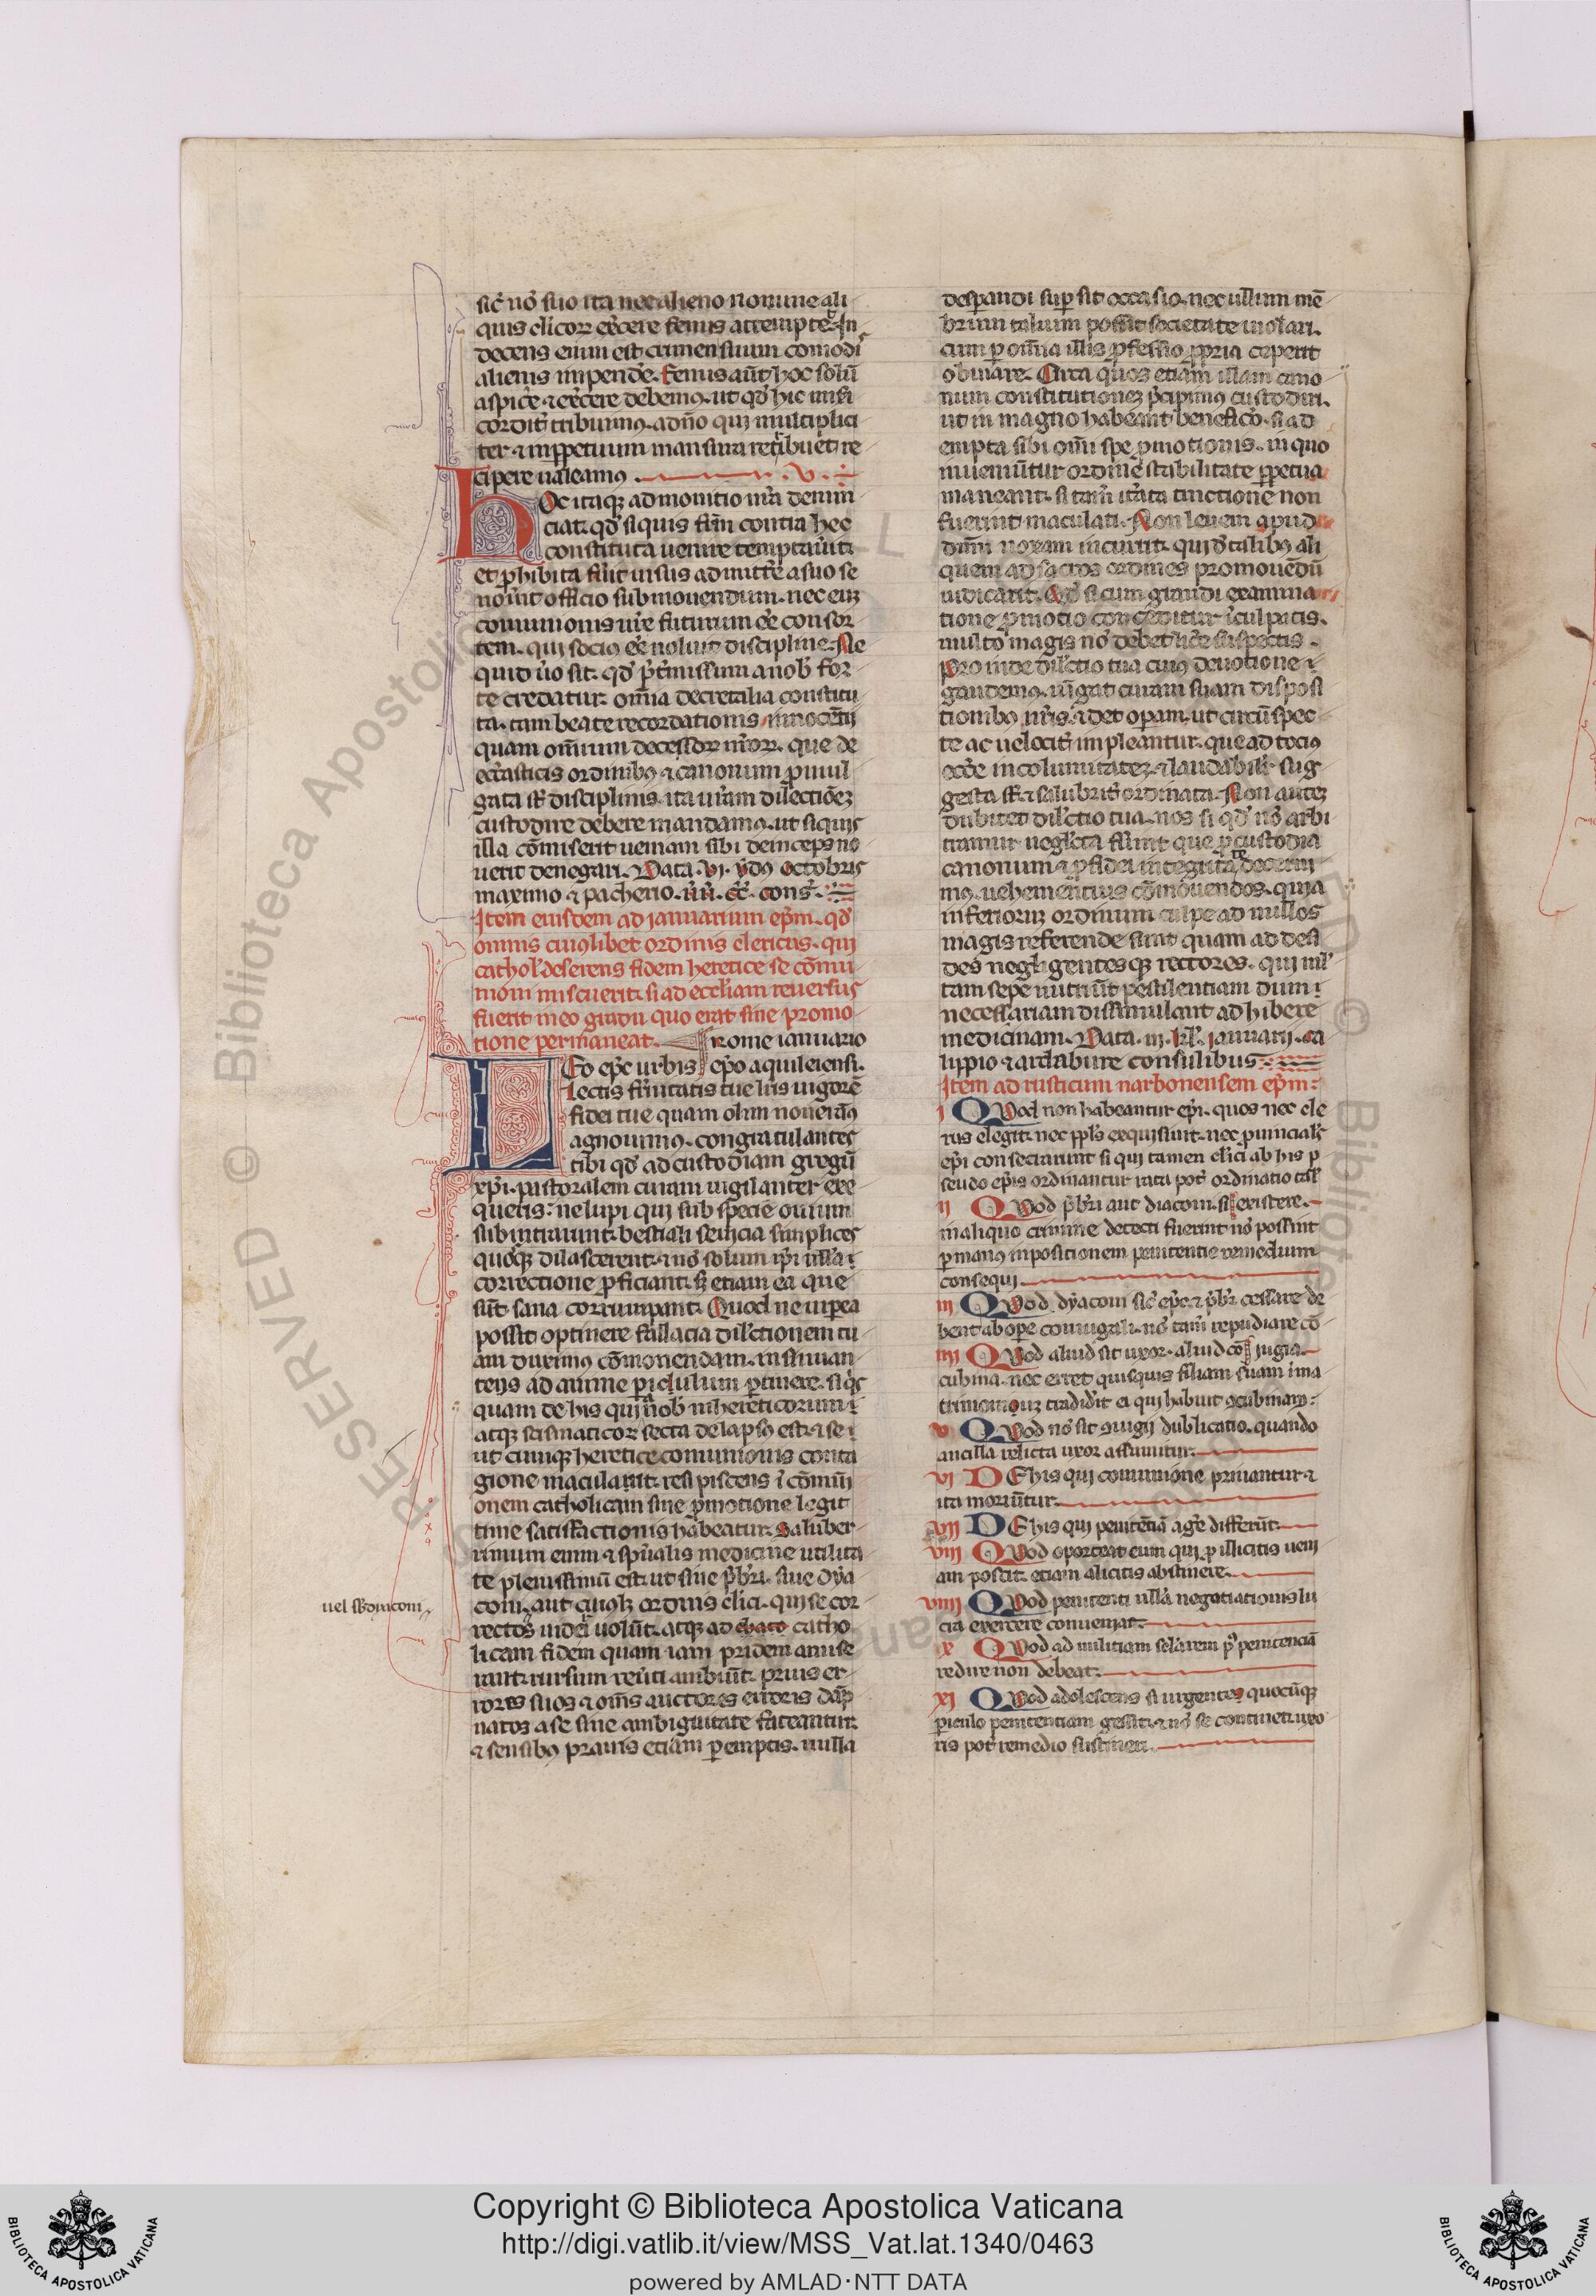 sic̄ nō suo ita nec alieno nomine ali
quis clicoꝝ ex̄cere fenus attemptet. In
decens enim est crimen suum comodi
alienis impendē. Fenus aūt hoc solū
aspice᷑ ⁊ ex̄cere debemꝰ. ut qd̓ hic mi̅si
cordit̓ tribuimꝰ. a dn̄o qui multiplici
ter ⁊ inp̱petuum mansura retribuet re
cipere ualeamꝰ. V.
Hoc itaqꝫ admonitio nr̄a denun
ciat. qd̓ si quis fr̄m contra hec
constituta uenire temptau̓it.
et ꝓhibita fu̓it ausus admitte᷑ a suo se
nou̓it officio submouendum. nec eiꝰ
comunionis nr̄e futurum eē consor
tem. qui sociꝰ eē noluit discipline. Ne
quid u̓o sit. qd̓ p̄t̓missum a nob̓ for
te credatur. om̄ia decretalia constitu
ta. tam beate recordationis innocētii
quam om̄ium decessoꝝ nr̄oꝝ. que de
eccl̓asticis ordinibꝰ ⁊ canonum ꝓmul
gata st̄ disciplinis. ita ur̄am dilectiōeꝫ
custodire debere mandamꝰ. ut siquis
illa cōmiserit ueniam sibi deinceps no
uerit denegari. Data. vi. ydꝰ octobris
maximo ⁊ pacherio. ūū. cc̄. conſ.
Item eiusdem ad ianuarium ep̄m. qd̓
omnis cuiꝰlibet ordinis clericus. qui
cathol̓ deserens fidem heretice se cōmu
nioni miscuerit. si ad eccl̓iam reuersus
fuerit in eo gradu quo erat sine promo
tione permaneat. rome ianuario
LEo ep̄c urbis ep̄o aquileiensi.
Lectis fr̄nitatis tue lr̄is uigorē
fidei tue quam olim nouerāꝰ
agnouimꝰ. congratulantes
tibi qd̓ ad custodiam gregū
xp̄i. pastoralem curam uigilanter exe
queris: ne lupi qui sub specie ouium
subintrarunt. bestiali seuicia simplices
quosqꝫ dilascerent. ⁊ nō solum ip̄i nulla ī
correctione ꝓficiant. sꝫ etiam ea que
sūt sana corrumpant. Quod ne uiperea
possit optinere fallacia dil̓ctionem tu
am duximꝰ cōmonendam. insinuan
tes ad anime periculum ꝑtinere. si qͥs
quam de his qui a nob̓ in hereticorum ī
atqꝫ scismaticoꝝ secta delapsꝰ est. ⁊ se ī
ut cunqꝫ heretice comunionis conta
gione macularit. resipiscens ī cōmuni
onem catholicam sine ꝓmotione legit
time satisfactionis habeatur. Saluber
rimum enim ⁊ sp̄ualis medicine utilita
te plenissimū est. ut siue p̄bri. siue dya
coni. aut cuiꝰlꝫ ordinis clici. qui se cor
uel sbdiaconi
rectos uideri uolūt. atqꝫ ad catho
licam fidem quam iam pridem amise
rant. rursum reuerti ambiūt. prius er
rores suos ⁊ om̄s auctores erroris dāp
natos a se sine ambiguitate fateantur.
⁊ sensibꝰ prauis etiam ꝑemptis. nulla
desperandi suꝑsit occasio. nec ullum mē
brum talium possit societate uiolari.
cum ꝑ om̄ia illis ꝓfessio ꝓpria ceperit
obuiare. Circa quos etiam illam cano
num constitutioneꝫ p̄cipimus custodiri.
ut in magno habeant beneficio. si ad
empta sibi om̄i spe ꝓmotionis. in quo
inueniūtur ordine stabilitate ꝑpetua
maneant. si tam̄ it̓ata tinctione non
fuerint maculati. Non leuem apud
dn̄m noxam incurrit. qui de talibꝰ ali
quem ad sacros ordines promouēdū
iudicarit. Qd̓ si cum grandi examina
tione ꝓmotio conceditur īculpatis.
multo magis nō debet lice᷑ suspectis.
Proinde dil̓ctio tua cuiꝰ deuotione ī
gaudemꝰ. iūgat curam suam disposi
tionibꝰ nr̄is. ⁊ det oꝑam. ut circūspec
te ac uelocit̓ impleantur. que ad tociꝰ
eccl̓ie incolumitateꝫ. ⁊ laudabilit̓ sug
gesta st̄. ⁊ salubrit̓ ordinata. Non auteꝫ
dubitet dil̓ctio tua. nos si qd̓ nō arbi
tramur neglecta fu̓int que ꝓ custodia
canonum ⁊ ꝓ fidei integritate decerni
mꝰ. uehementius cōmouendos. quia
inferioruꝫ ordinum culpe ad nullos
magis referende sunt quam ad desi
des negligentesqꝫ rectores. qui ml̓
tam sepe nutriūt pestilentiam dum ī
necessariam dissimulant adhibere
medicinam. Data. iii. kl̓. ianuarii. ca
lippio ⁊ ardabure consulibus.
Item ad rusticum narbonensem ep̄m:
i QVod non habeantur ep̄i. quos nec cle
rus elegit. nec ppl̓s exquisiuit. nec ꝓuinciales
ep̄i consecrarunt si qui tamen clici ab his p
seudo ep̄is ordinantur rata pot̓ ordinatio talis
ii QVod p̄bri aut diaconi. si existere.
in aliquo crimine detecti fuerint nō possint
ꝑ manus inpositionem penitentie remedium
consequi
iii QVod dyaconi sic̄ ep̄c ⁊ p̄br̄ cessare de
bent ab oꝑe coniugali. nō tam̄ repudiare cō
iiii QVod aliud sit uxor. aliud cō iugia.
cubina. nec erret quisquis filiam suam ī ma
trimoniuꝫ tradidit ei qui habuit ꝯcubinam:
v QVod nō sit ꝯiugii dublicatio. quando
ancilla relicta uxor assumitur.
vi DE his qui communione priuantur ⁊
ita moriūtur.
vii DE his qui penitētiā age᷑ differūt.
viii QVod oporteat eum qui ꝓ illicitis ueni
am poscit. etiam a licitis abstinere.
viiii QVod penitenti nulla negotiationis lu
cra exercere conueniat.
x QVod ad militiam secl̓arem pꝰ penitenciā
redire non debeat.
xi QVod adolescens si urgente quocūqꝫ
ꝑiculo penitentiam gessit. ⁊ nō se continet. uxo
ris pot̓ remedio sustineri.
Copyright © Biblioteca Apostolica Vaticana
http://digi.vatlib.it/view/MSS_Vat.lat.1340/0463
powered by AMLAD·NTT DATA
BIBLIOTECA APOSTOLICA VATICANA
BIBLIOTECA APOSTOLICA VATICANA